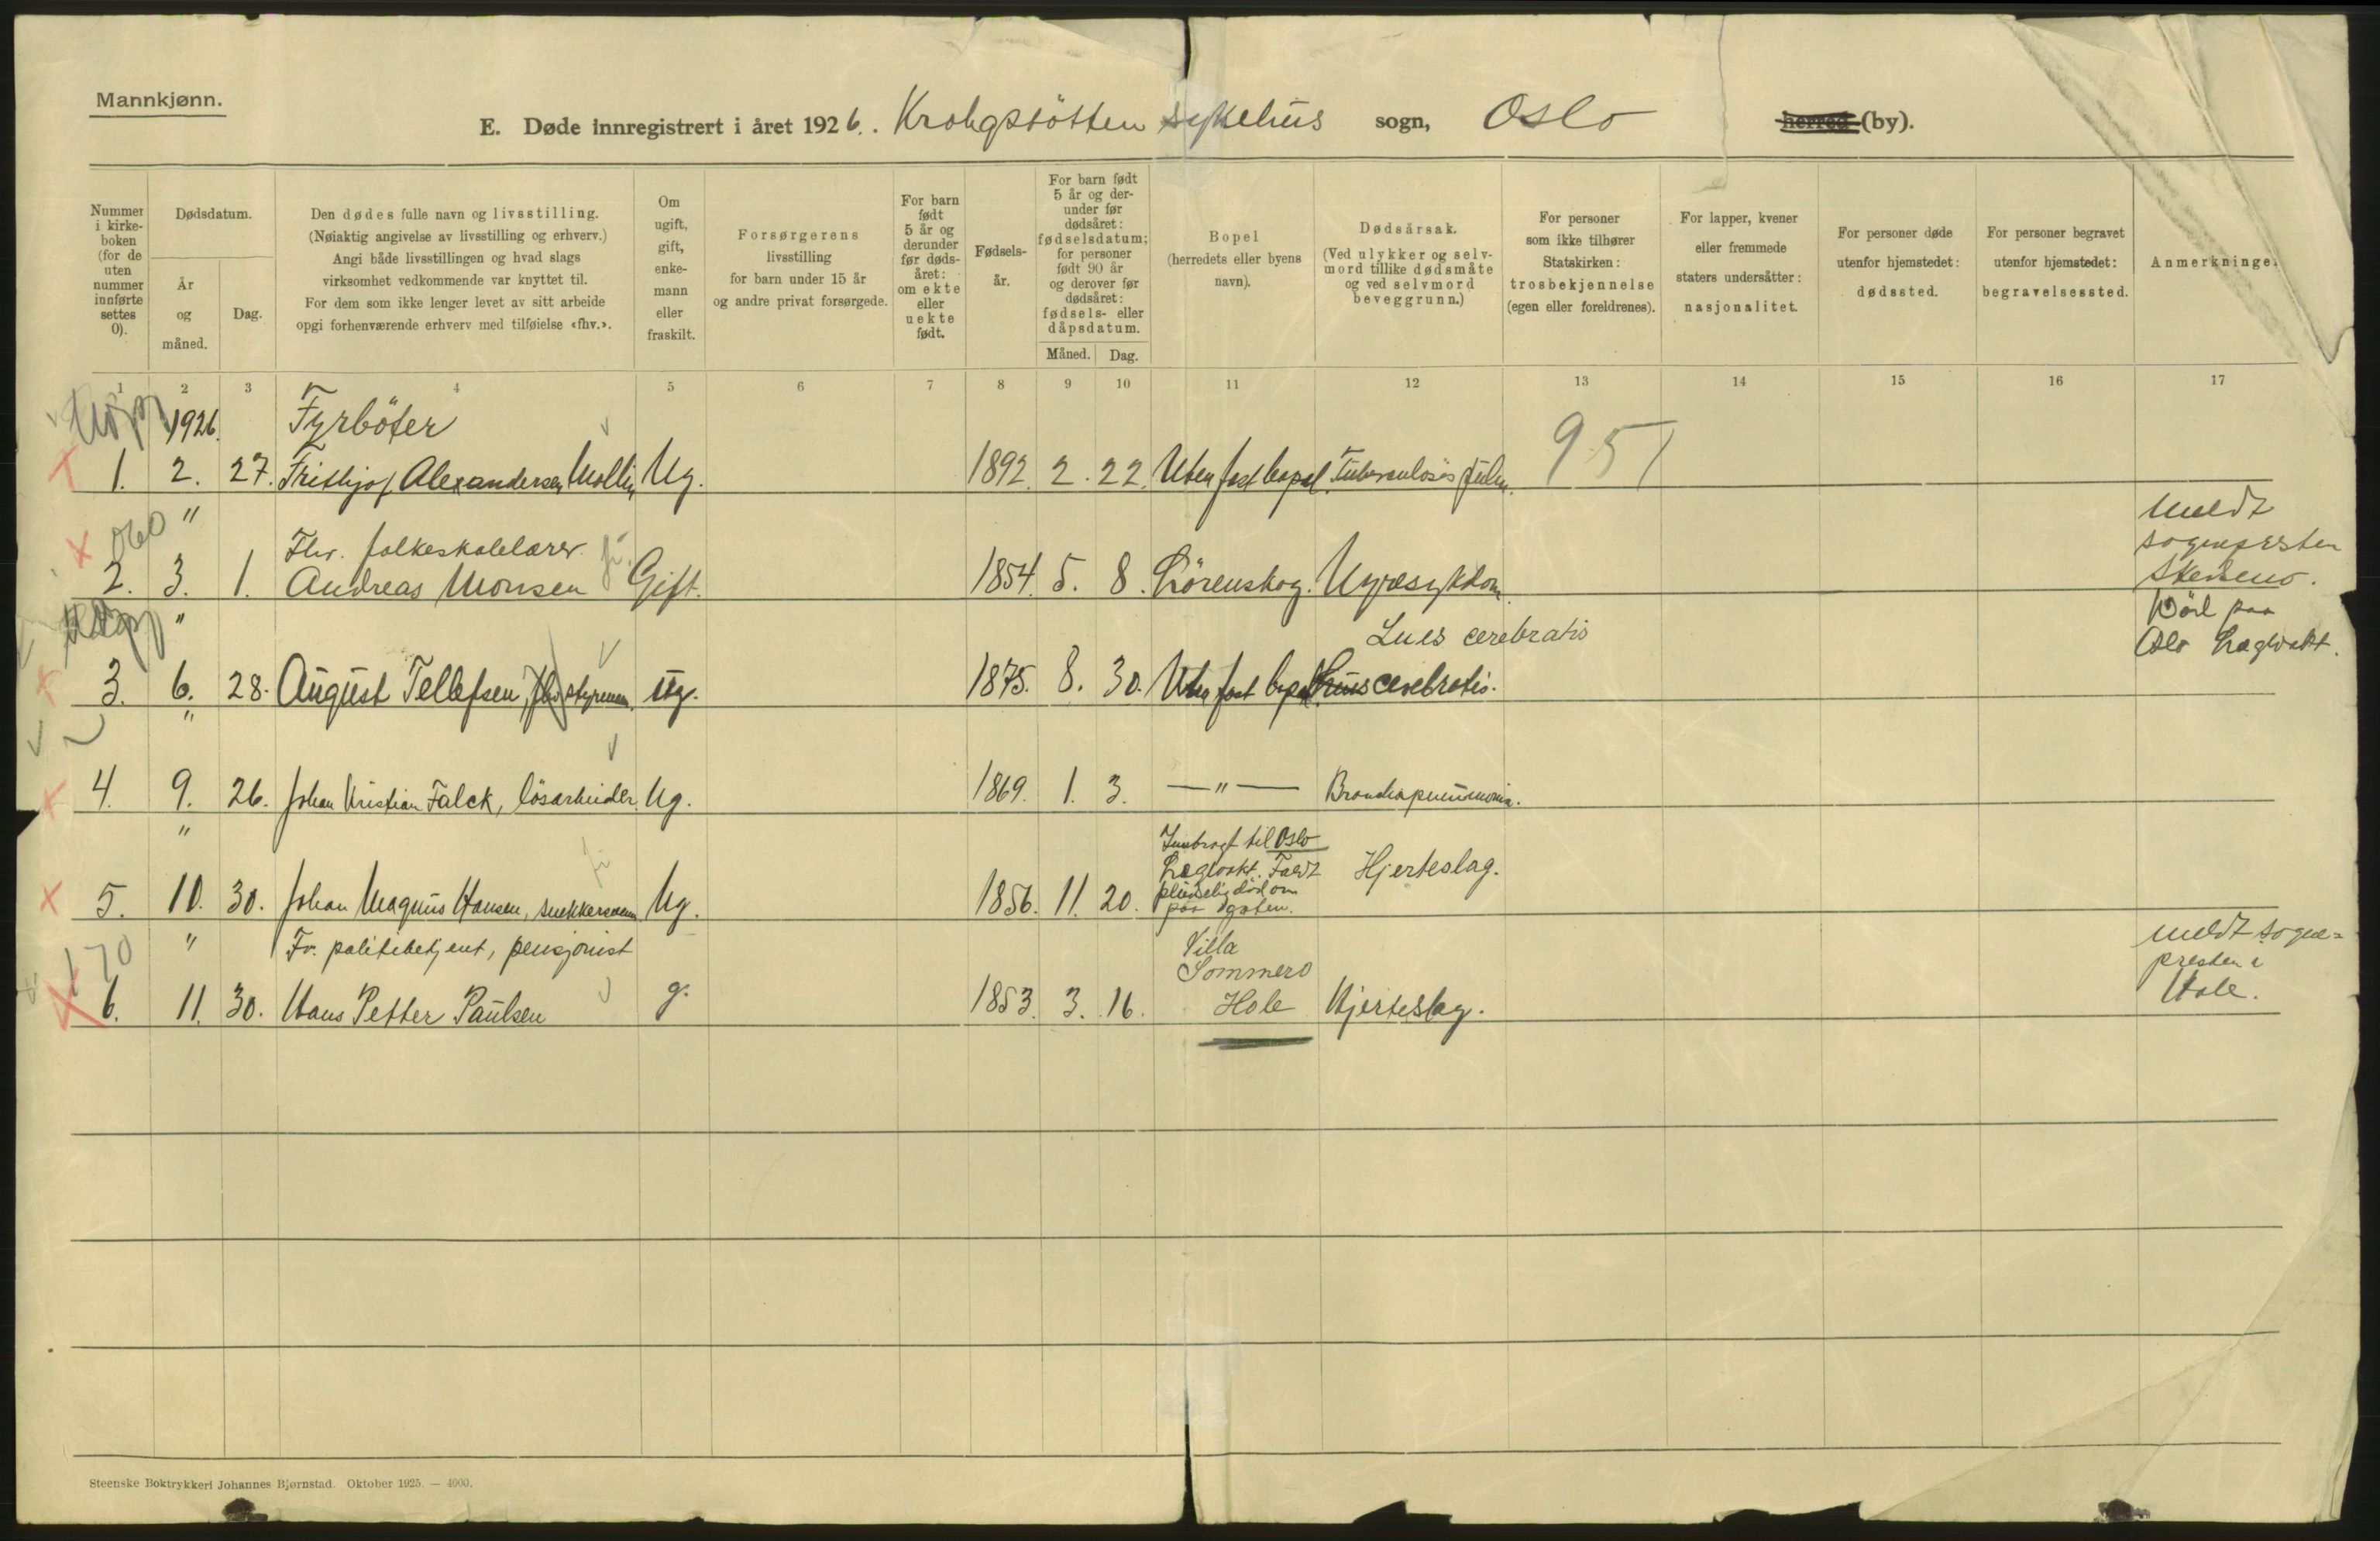 Mannkjønn.
E. Døde innregistrert i året 1926. Krohgstötten sykehus sogn, Oslo herred (by).
Nummer i kirkeboken (for de uten nummer innførte settes 0).
Dødsdatum.
År og måned.
Dag.
Den dødes fulle navn og livsstilling.
(Nøiaktig angivelse av livsstilling og erhverv.)
Angi både livsstillingen og hvad slags
virksomhet vedkommende var knyttet til.
For dem som ikke lenger levet av sitt arbeide
opgi forhenværende erhverv med tilføielse «fhv.».
Om ugift, gift, enkemann eller fraskilt.
Forsørgerens
livsstilling
for barn under 15 år
og andre privat forsørgede.
For barn født 5 år og derunder før dødsåret: om ekte eller uekte født.
Fødselsår.
For barn født 5 år og derunder før dødsåret: fødselsdatum; for personer født 90 år og derover før dødsåret: fødsels- eller dåpsdatum.
Måned. Dag.
Bopel
(herredets eller byens
navn).
Dødsårsak.
(Ved ulykker og selvmord tillike dødsmåte og ved selvmord beveggrunn.)
For personer
som ikke tilhører
Statskirken:
trosbekjennelse
(egen eller foreldrenes).
For lapper, kvener
eller fremmede
staters undersåtter:
nasjonalitet.
For personer døde
utenfor hjemstedet:
dødssted.
For personer begravet
utenfor hjemstedet:
begravelsessted.
Anmerkninge
1 2 3 4 5 6 7 8 9 10 11 12 13 14 15 16 17
1926. Fyrböter
1. 2. 27. Frithjof Alexandersen Mollin Ug. 1892. 2. 22. Uten fast bopel. Tuberculosis pulm. 951
" Fhv. folkeskolelærer
2. 3. 1. Andreas Monsen Gift. 1854. 5. 8. Lörenskog. Nyresykdom.
meldt
sognepresten
Skedsmo.
" Lues cerebralis
3. 6. 28. August Tellefsen, fhv. styrmann. ug. 1875. 8. 30. Uten fast bopel. Lues cerebralis.
Död paa
Oslo Lægevakt.
"
4. 9. 26. Johan Kristian Falck, lösarbeider. Ug. 1869. 1. 3. — " — Bronchopneumonia.
"
5. 10. 30. Johan Magnus Hansen, snekkersvenn. Ug. 1856. 11. 20.
Innbragt til Oslo
Lægevakt. Faldt
pludselig död om
paa gaten.
Hjerteslag.
170 " Fv. politibetjent, pensjonist
6. 11. 30. Hans Petter Paulsen g. 1853. 3. 16.
Villa
Sommero
Hole Hjerteslag.
meldt sogne=
presten i
Hole.
Steenske Boktrykkeri Johannes Bjørnstad. Oktober 1925. — 4000.